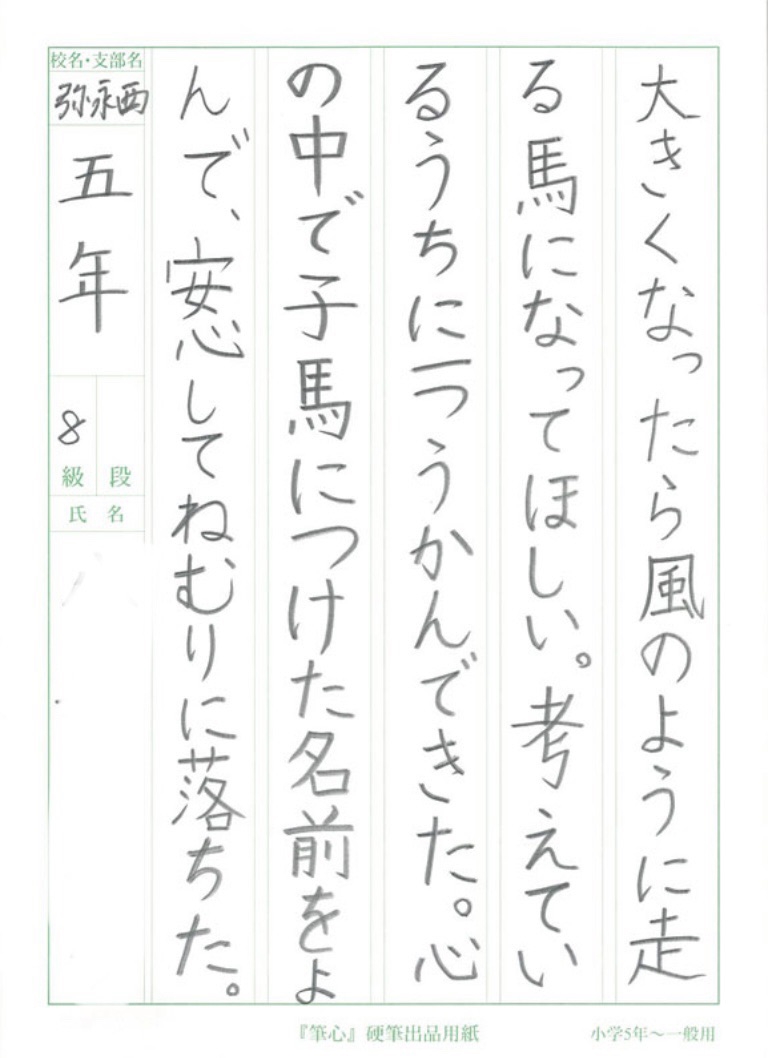 大きくなったら風のように走
る馬になってほしい。考えてい
るうちに一つうかんできた。心
の中で子馬につけた名前をよ
んで、安心してねむりに落ちた。
校名・支部名
弥永西
五年
8
級 段
氏名
『筆心』硬筆出品用紙
小学5年〜一般用